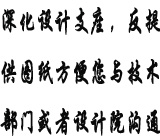 深化设计支座，反接
供图纸方便您与技术
部门或者设计院沟通